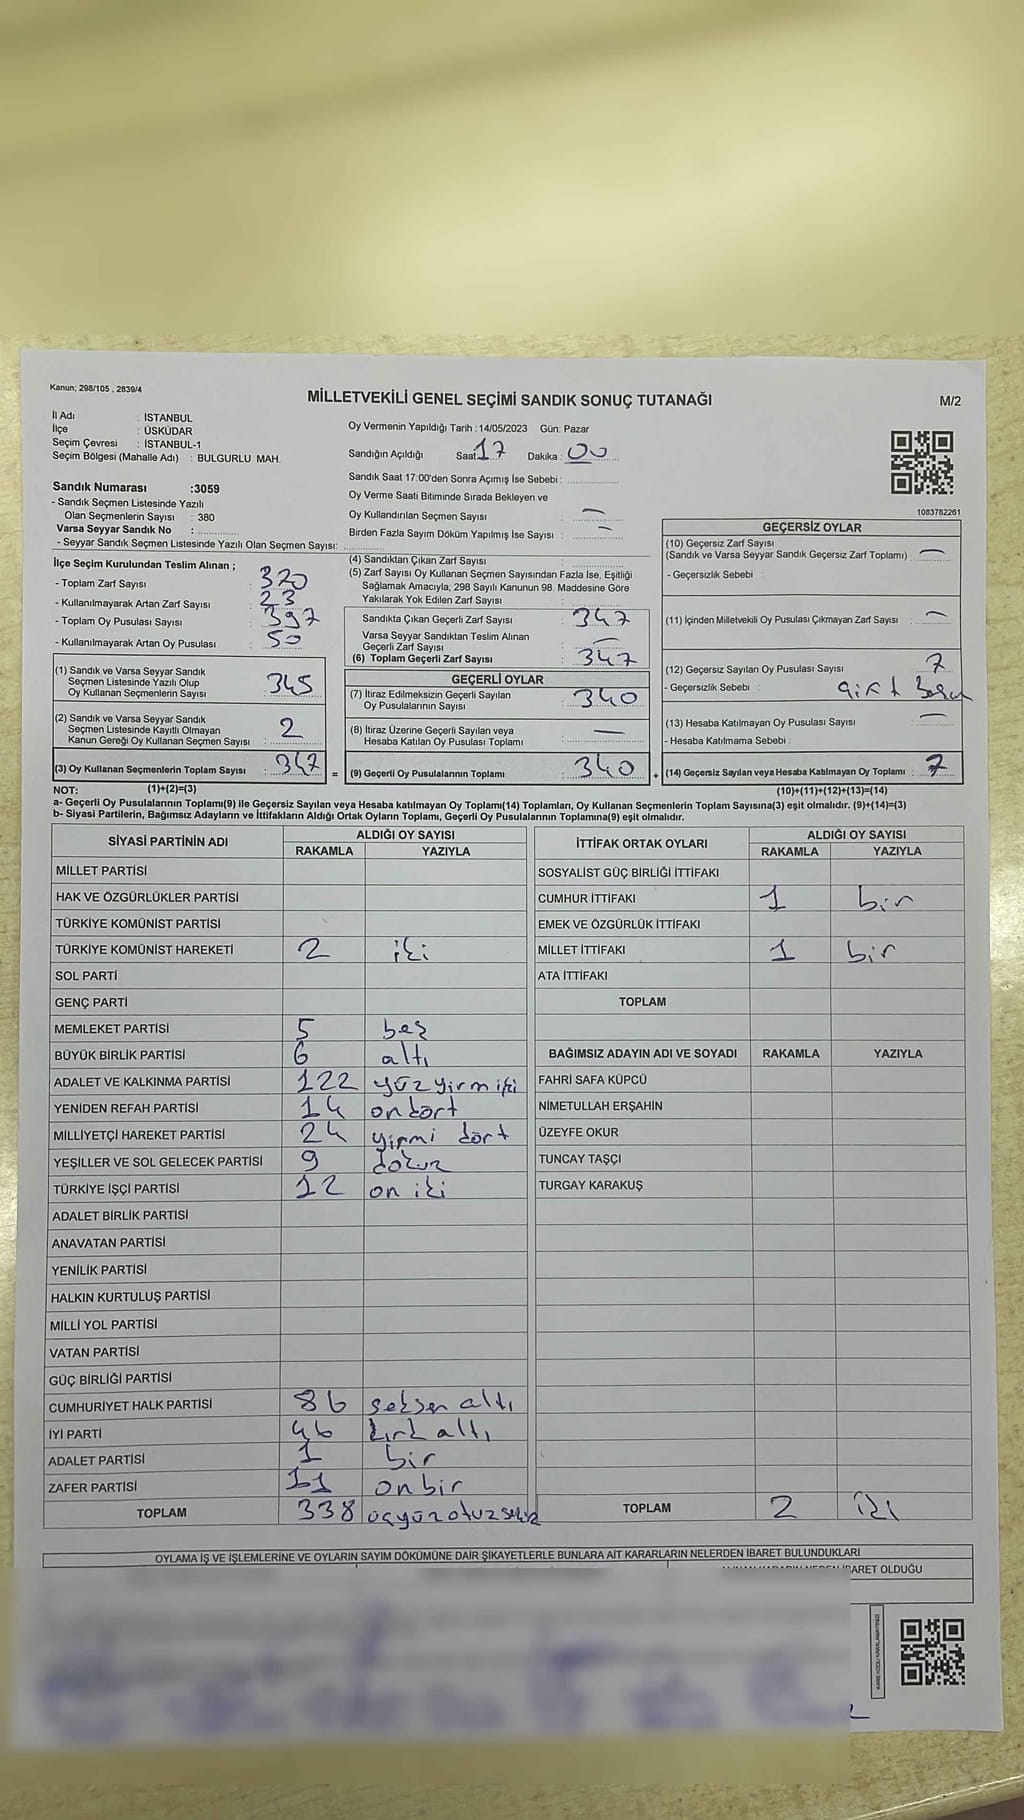 Kanun; 298/105 , 2839/4
MİLLETVEKİLİ GENEL SEÇİMİ SANDIK SONUÇ TUTANAĞI
M/2
İl Adı : İSTANBUL
İlçe : ÜSKÜDAR
Seçim Çevresi : İSTANBUL-1
Seçim Bölgesi (Mahalle Adı) : BULGURLU MAH.
Oy Vermenin Yapıldığı Tarih :14/05/2023 Gün: Pazar
Sandığın Açıldığı Saat: 17 Dakika : 00
Sandık Saat 17:00'den Sonra Açımış İse Sebebi :
Oy Verme Saati Bitiminde Sırada Bekleyen ve
Oy Kullandırılan Seçmen Sayısı : —
Birden Fazla Sayım Döküm Yapılmış İse Sayısı : —
1083782261
Sandık Numarası :3059
- Sandık Seçmen Listesinde Yazılı
Olan Seçmenlerin Sayısı : 380
Varsa Seyyar Sandık No :
- Seyyar Sandık Seçmen Listesinde Yazılı Olan Seçmen Sayısı:
İlçe Seçim Kurulundan Teslim Alınan ;
- Toplam Zarf Sayısı : 320
- Kullanılmayarak Artan Zarf Sayısı : 23
- Toplam Oy Pusulası Sayısı : 397
- Kullanılmayarak Artan Oy Pusulası : 50
(1) Sandık ve Varsa Seyyar Sandık
Seçmen Listesinde Yazılı Olup
Oy Kullanan Seçmenlerin Sayısı : 345
(2) Sandık ve Varsa Seyyar Sandık
Seçmen Listesinde Kayıtlı Olmayan
Kanun Gereği Oy Kullanan Seçmen Sayısı : 2
(3) Oy Kullanan Seçmenlerin Toplam Sayısı : 347
(4) Sandıktan Çıkan Zarf Sayısı :
(5) Zarf Sayısı Oy Kullanan Seçmen Sayısından Fazla İse, Eşitliği
Sağlamak Amacıyla; 298 Sayılı Kanunun 98. Maddesine Göre
Yakılarak Yok Edilen Zarf Sayısı :
Sandıkta Çıkan Geçerli Zarf Sayısı : 347
Varsa Seyyar Sandıktan Teslim Alınan
Geçerli Zarf Sayısı : —
(6) Toplam Geçerli Zarf Sayısı : 347
GEÇERLİ OYLAR
(7) İtiraz Edilmeksizin Geçerli Sayılan
Oy Pusulalarının Sayısı : 340
(8) İtiraz Üzerine Geçerli Sayılan veya
Hesaba Katılan Oy Pusulası Toplamı : —
= (9) Geçerli Oy Pusulalarının Toplamı : 340 +
GEÇERSİZ OYLAR
(10) Geçersiz Zarf Sayısı
(Sandık ve Varsa Seyyar Sandık Geçersiz Zarf Toplamı) : —
- Geçersizlik Sebebi :
(11) İçinden Milletvekili Oy Pusulası Çıkmayan Zarf Sayısı : —
(12) Geçersiz Sayılan Oy Pusulası Sayısı : 7
- Geçersizlik Sebebi :
(13) Hesaba Katılmayan Oy Pusulası Sayısı : —
- Hesaba Katılmama Sebebi :
(14) Geçersiz Sayılan veya Hesaba Katılmayan Oy Toplamı : 7
NOT: (1)+(2)=(3) (10)+(11)+(12)+(13)=(14)
a- Geçerli Oy Pusulalarının Toplamı(9) ile Geçersiz Sayılan veya Hesaba katılmayan Oy Toplamı(14) Toplamları, Oy Kullanan Seçmenlerin Toplam Sayısına(3) eşit olmalıdır. (9)+(14)=(3)
b- Siyasi Partilerin, Bağımsız Adayların ve İttifakların Aldığı Ortak Oyların Toplamı, Geçerli Oy Pusulalarının Toplamına(9) eşit olmalıdır.
SİYASİ PARTİNİN ADI ALDIĞI OY SAYISI
RAKAMLA YAZIYLA
MİLLET PARTİSİ
HAK VE ÖZGÜRLÜKLER PARTİSİ
TÜRKİYE KOMÜNİST PARTİSİ
TÜRKİYE KOMÜNİST HAREKETİ 2 iki
SOL PARTİ
GENÇ PARTİ
MEMLEKET PARTİSİ 5 beş
BÜYÜK BİRLİK PARTİSİ 6 altı
ADALET VE KALKINMA PARTİSİ 122 yüzyirmiiki
YENİDEN REFAH PARTİSİ 14 ondört
MİLLİYETÇİ HAREKET PARTİSİ 24 yirmi dört
YEŞİLLER VE SOL GELECEK PARTİSİ 9 dokuz
TÜRKİYE İŞÇİ PARTİSİ 12 on iki
ADALET BİRLİK PARTİSİ
ANAVATAN PARTİSİ
YENİLİK PARTİSİ
HALKIN KURTULUŞ PARTİSİ
MİLLİ YOL PARTİSİ
VATAN PARTİSİ
GÜÇ BİRLİĞİ PARTİSİ
CUMHURİYET HALK PARTİSİ 86 seksen altı
İYİ PARTİ 46 kırk altı
ADALET PARTİSİ 1 bir
ZAFER PARTİSİ 11 on bir
TOPLAM 338 üçyüzotuzsekiz
İTTİFAK ORTAK OYLARI ALDIĞI OY SAYISI
RAKAMLA YAZIYLA
SOSYALİST GÜÇ BİRLİĞİ İTTİFAKI
CUMHUR İTTİFAKI 1 bir
EMEK VE ÖZGÜRLÜK İTTİFAKI
MİLLET İTTİFAKI 1 bir
ATA İTTİFAKI
TOPLAM
BAĞIMSIZ ADAYIN ADI VE SOYADI RAKAMLA YAZIYLA
FAHRİ SAFA KÜPCÜ
NİMETULLAH ERŞAHİN
ÜZEYFE OKUR
TUNCAY TAŞÇI
TURGAY KARAKUŞ
TOPLAM 2 iki
OYLAMA İŞ VE İŞLEMLERİNE VE OYLARIN SAYIM DÖKÜMÜNE DAİR ŞİKAYETLERLE BUNLARA AİT KARARLARIN NELERDEN İBARET BULUNDUKLARI
OLDUĞU